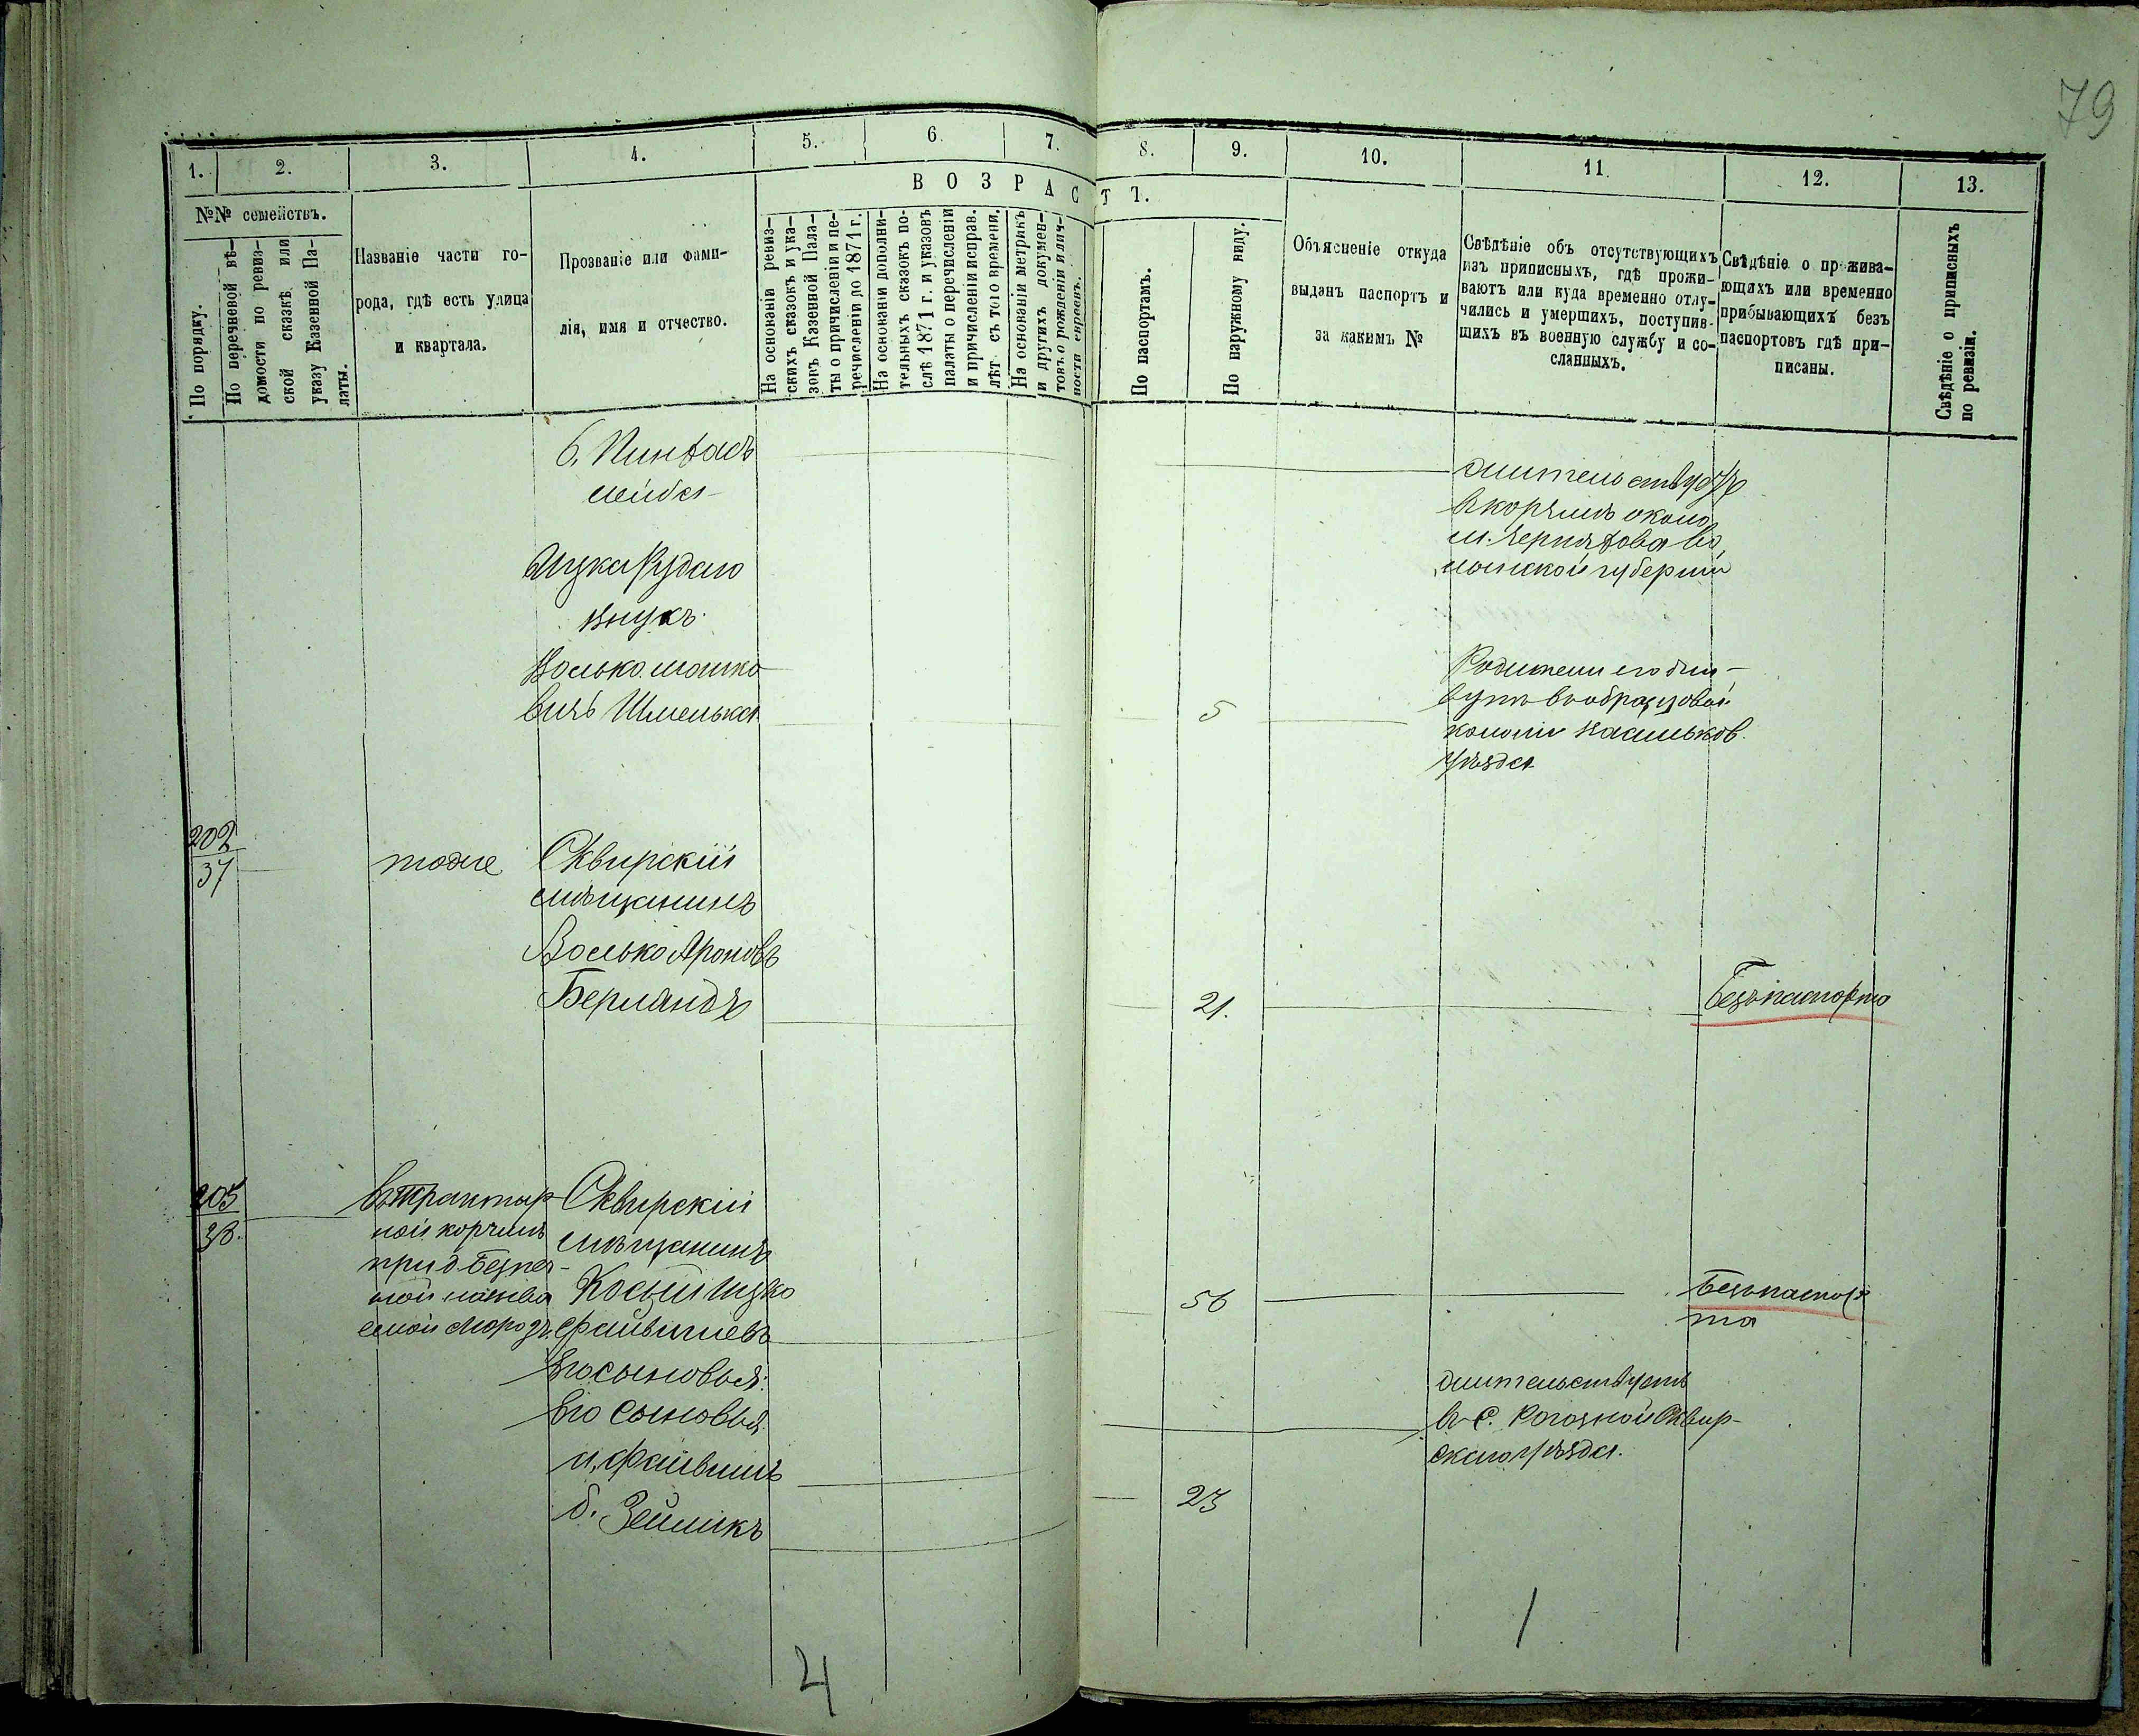 79
1.
2.
3.
4.
5.
6.
7.
8.
9.
10.
11.
12.
13.
ВОЗРАСТЪ.
№№ семействъ.
По порядку.
По перечневой вѣ-
домости по ревиз-
ской сказкѣ или
указу Казенной Па-
латы.
Названіе части го-
рода, гдѣ есть улица
и квартала.
Прозваніе или фами-
лія, имя и отчество.
На основаніи ревиз-
скихъ сказокъ и ука-
зовъ Казенной Пала-
ты о причисленіи и пе-
речисленіи до 1871 г.
На основаніи дополни-
тельныхъ сказокъ по-
слѣ 1871 г. и указовъ
палаты о перечисленіи
и причисленіи исправ.
лѣт съ того времени.
На основаніи метрикъ
и другихъ докумен-
товъ о рожденіи и лич-
ности евреевъ.
По паспортамъ.
По наружному виду.
Объясненіе откуда
выданъ паспортъ и
за какимъ №
Свѣдѣніе объ отсутствующихъ
изъ приписныхъ, гдѣ прожи-
ваютъ или куда временно отлу-
чились и умершихъ, поступив-
шихъ въ военную службу и со-
сланныхъ.
Свѣдѣніе о прожива-
ющихъ или временно
прибывающихъ безъ
паспортовъ гдѣ при-
писаны.
Свѣдѣніе о приписныхъ
по ревизіи.
б. Пинхасъ
Лейба
жительствуетъ
въ корчмѣ около
м. Черняхова Во
лынской губерніи
внукъ
Волько Мошко
вичъ Шмелька
5
Родители его жи-
вутъ въ образцовой
колоніи Васильков.
уѣзда
202
37
тоже
Сквирскій
мѣщанинъ
Волько Ароновъ
Берландъ
21.
Безъ паспорта
203
38.
въ трактир
ной корчмѣ
при д. Безпеч-
ной
Сквирскій
мѣщанинъ
Іосій Ицко
Файвишевъ
56
Безъ паспор
та
Его сыновья:
Его сыновья
а, Файвишъ
жительствуетъ
въ с. Рогозной Сквир-
скаго уѣзда.
б. Зейликъ
23
4
1